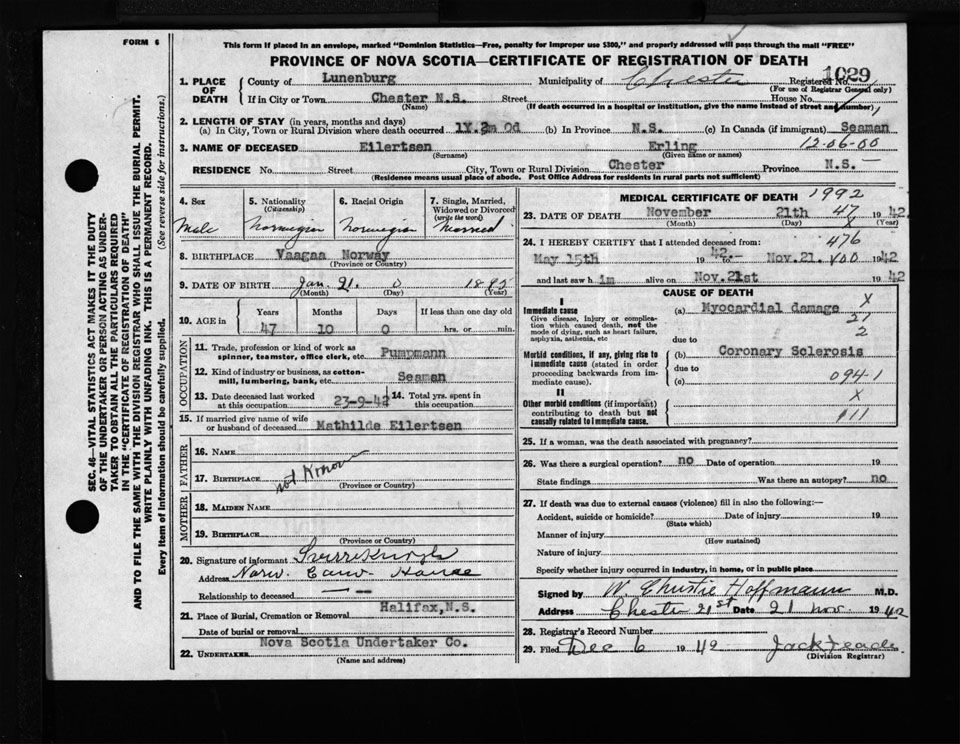 FORM 6
This form if placed in an envelope, marked "Dominion Statistics—Free, penalty for improper use $300," and properly addressed will pass through the mail "FREE"
PROVINCE OF NOVA SCOTIA—CERTIFICATE OF REGISTRATION OF DEATH
1029
1. PLACE OF DEATH County of Lunenburg Municipality of Chester Registered No.
(For use of Registrar General only)
If in City or Town Chester N.S. Street House No.
(Name) (If death occurred in a hospital or institution, give the name instead of street and number)
2. LENGTH OF STAY (in years, months and days)
(a) In City, Town or Rural Division where death occurred (b) In Province N.S. (c) In Canada (if immigrant) Seaman
3. NAME OF DECEASED Eilertsen Erling 12-06-00
(Surname) (Given name or names)
RESIDENCE No. Street City, Town or Rural Division Chester Province N.S.
(Residence means usual place of abode. Post Office Address for residents in rural parts not sufficient)
4. Sex 5. Nationality (Citizenship) 6. Racial Origin 7. Single, Married, Widowed or Divorced (write the word)
Male Norwegian Norwegian Married
8. BIRTHPLACE Vaagaa Norway
(Province or Country)
9. DATE OF BIRTH Jan. 21. 0
(Month) (Day) (Year)
10. AGE in Years Months Days If less than one day old
47 10 0 hrs. or min.
OCCUPATION
11. Trade, profession or kind of work as spinner, teamster, office clerk, etc. Pumpmann
12. Kind of industry or business, as cotton-mill, lumbering, bank, etc. Seaman
13. Date deceased last worked at this occupation 23-9-42 14. Total yrs. spent in this occupation
15. If married give name of wife or husband of deceased Mathilde Eilertsen
FATHER
16. NAME
17. BIRTHPLACE not Known
(Province or Country)
MOTHER
18. MAIDEN NAME
19. BIRTHPLACE
(Province or Country)
20. Signature of informant
Address Norw. House
Relationship to deceased
21. Place of Burial, Cremation or Removal Halifax, N.S.
Date of burial or removal
22. UNDERTAKER Nova Scotia Undertaker Co.
(Name and address)
MEDICAL CERTIFICATE OF DEATH 1992
23. DATE OF DEATH November 21th 47 1942
(Month) (Day) (Year)
24. I HEREBY CERTIFY that I attended deceased from: 476
May 15th 1942 to Nov. 21. 1942
and last saw him alive on Nov. 21st 1942
CAUSE OF DEATH
I
Immediate cause
Give disease, injury or complication which caused death, not the mode of dying, such as heart failure, asphyxia, asthenia, etc
(a) Myocardial damage X
21
2
due to
Morbid conditions, if any, giving rise to immediate cause (stated in order proceeding backwards from immediate cause).
(b) Coronary Sclerosis
due to
(c) 094-1
II
Other morbid conditions (if important) contributing to death but not causally related to immediate cause.
X
25. If a woman, was the death associated with pregnancy?
26. Was there a surgical operation? no Date of operation 19
State findings Was there an autopsy? no
27. If death was due to external causes (violence) fill in also the following:—
Accident, suicide or homicide? Date of injury 19
(State which)
Manner of injury
(How sustained)
Nature of injury
Specify whether injury occurred in industry, in home, or in public place
Signed by W. Christie Hoffmann M.D.
Address Chester 21st Date 21 Nov. 1942
28. Registrar's Record Number
29. Filed Dec 6 1949 Jack
(Division Registrar)
SEC. 46—VITAL STATISTICS ACT MAKES IT THE DUTY
OF THE UNDERTAKER OR PERSON ACTING AS UNDER-
TAKER TO OBTAIN ALL THE PARTICULARS REQUIRED
IN THE "CERTIFICATE OF REGISTRATION OF DEATH"
AND TO FILE THE SAME WITH THE DIVISION REGISTRAR WHO SHALL ISSUE THE BURIAL PERMIT.
WRITE PLAINLY WITH UNFADING INK. THIS IS A PERMANENT RECORD.
Every item of information should be carefully supplied. (See reverse side for instructions.)